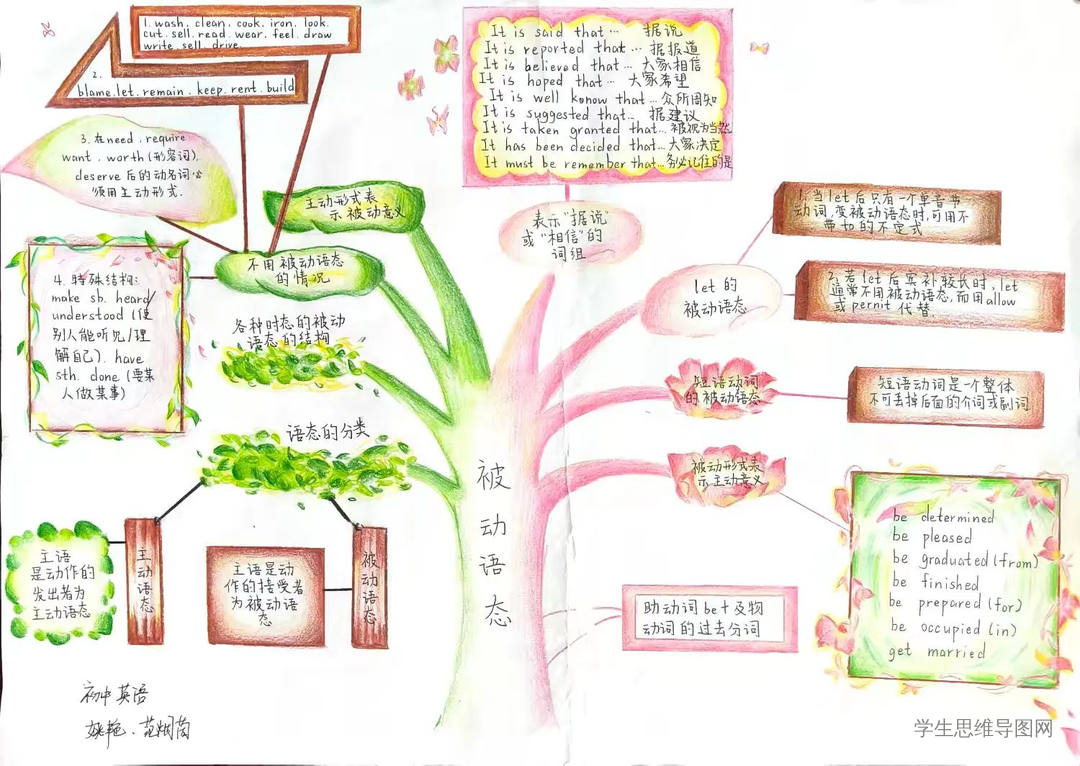 1. wash. clean. cook. iron. look.
cut. sell. read. wear. feel. draw
write. sell. drive.
2.
blame. let. remain. keep. rent. build
3. 在need. require
want. worth (形容词).
deserve 后的动名词必
须用主动形式.
主动形式表
示被动意义
不用被动语态
的情况
4. 特殊结构:
make sb. heard/
understood (使
别人能听见/理
解自己). have
sth. done (要某
人做某事)
各种时态的被动
语态的结构
语态的分类
主动语态
主语
是动作的
发出者为
主动语态
被动语态
主语是动
作的接受者
为被动语
态
被动语态
It is said that… 据说
It is reported that… 据报道
It is believed that… 大家相信
It is hoped that… 大家希望
It is well know that… 众所周知
It is suggested that… 据建议
It is taken granted that… 被视为当然
It has been decided that… 大家决定
It must be remember that… 务必记住的是
表示“据说”
或“相信”的
词组
let 的
被动语态
1. 当let后只有一个单音节
动词,变被动语态时,可用不
带to的不定式
2. 若let后宾补较长时, let
通常不用被动语态,而用allow
或permit 代替.
短语动词
的被动语态
短语动词是一个整体
不可丢掉后面的介词或副词
被动形式表
示主动意义
be determined
be pleased
be graduated (from)
be finished
be prepared (for)
be occupied (in)
get married
助动词 be+及物
动词的过去分词
初中英语
学生思维导图网